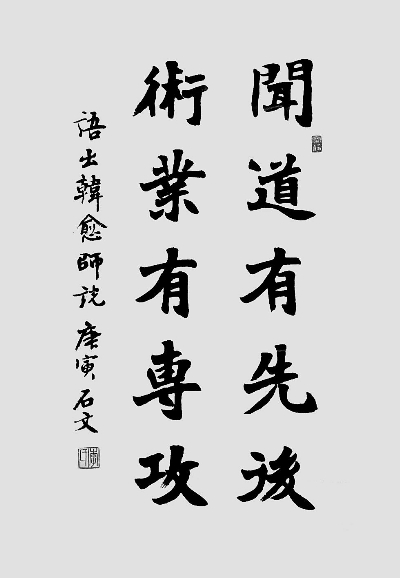 聞道有先後
術業有專攻
語出韓愈師説庚寅石文